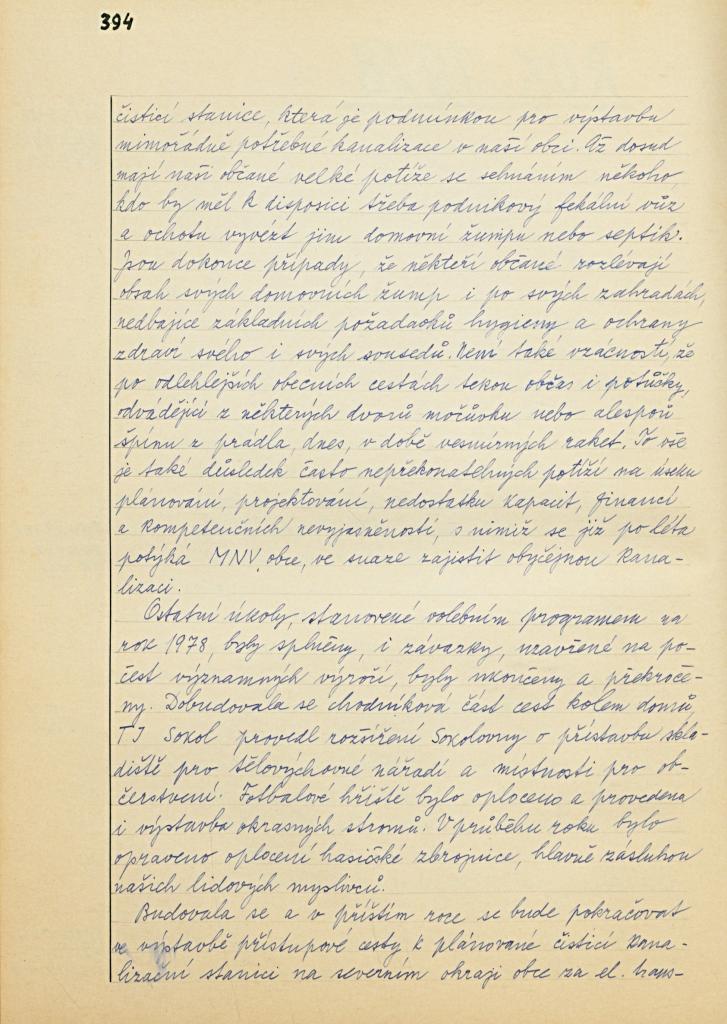 394
čisticí stanice, která je podmínkou pro výstavbu
mimořádně potřebné kanalizace v naší obci. Až dosud
mají naši občané velké potíže se sehnáním někoho,
kdo by měl k disposici třeba podnikový fekální vůz
a ochotu vyvézt jim domovní žumpu nebo septik.
Jsou dokonce případy, že někteří občané rozlévají
obsah svých domovních žump i po svých zahradách,
nedbajíce základních požadavků hygieny a ochrany
zdraví svého i svých sousedů. Není také vzácností, že
po odlehlejších obecních cestách tekou občas i potůčky,
odvádějící z některých dvorů močůvku nebo alespoň
špínu z prádla, dnes, v době vesmírných raket. To vše
je také důsledek často nepřekonatelných potíží na úseku
plánování, projektování, nedostatku kapacit, financí
a kompetenčních nevyjasněností, s nimiž se již po léta
potýká MNV obce, ve snaze zajistit obyčejnou kana-
lizaci.
Ostatní úkoly, stanovené volebním programem na
rok 1978, byly splněny, i závazky, uzavřené na po-
čest významných výročí, byly ukončeny a překroče-
ny. Dobudovala se chodníková část cest kolem domů,
TJ Sokol provedl rozšíření Sokolovny o přístavbu skla-
diště pro tělovýchovné nářadí a místnosti pro ob-
čerstvení. Fotbalové hřiště bylo oploceno a provedena
i výstavba okrasných stromů. V průběhu roku bylo
opraveno oplocení hasičské zbrojnice, hlavně zásluhou
našich lidových myslivců.
Budovala se a v příštím roce se bude pokračovat
ve výstavbě přístupové cesty k plánované čisticí kana-
lizační stanici na severním okraji obce za el. trans-